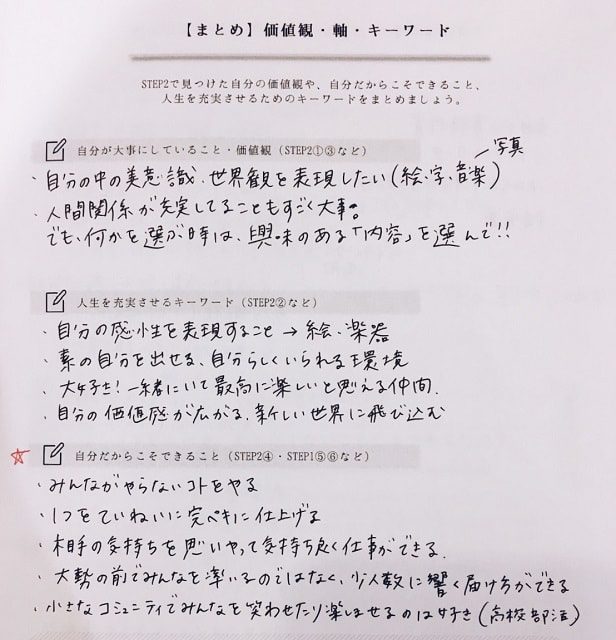 【まとめ】価値観・軸・キーワード
STEP2で見つけた自分の価値観や、自分だからこそできること、
人生を充実させるためのキーワードをまとめましょう。
自分が大事にしていること・価値観（STEP2①③など）
写真
・自分の中の美意識、世界観を表現したい(絵、字、音楽)
・人間関係が充実してることもすごく大事。
でも、何かを選ぶ時は、興味のある「内容」を選んで!!
人生を充実させるキーワード（STEP2②など）
・自分の感性を表現すること→絵、楽器
・素の自分を出せる、自分らしくいられる環境
・大好き!一緒にいて最高に楽しいと思える仲間.
・自分の価値感が広がる、新しい世界に飛び込む
☆ 自分だからこそできること（STEP2④・STEP1⑤⑥など）
・みんながやらないコトをやる
・1つをていねいに完ペキに仕上げる
・相手の気持ちを思いやって気持ち良く仕事ができる.
・大勢の前でみんなを率いるのではなく、少人数に響く届け方ができる
・小さなコミュニティでみんなを笑わせたり楽しませるのは好き(高校部活)